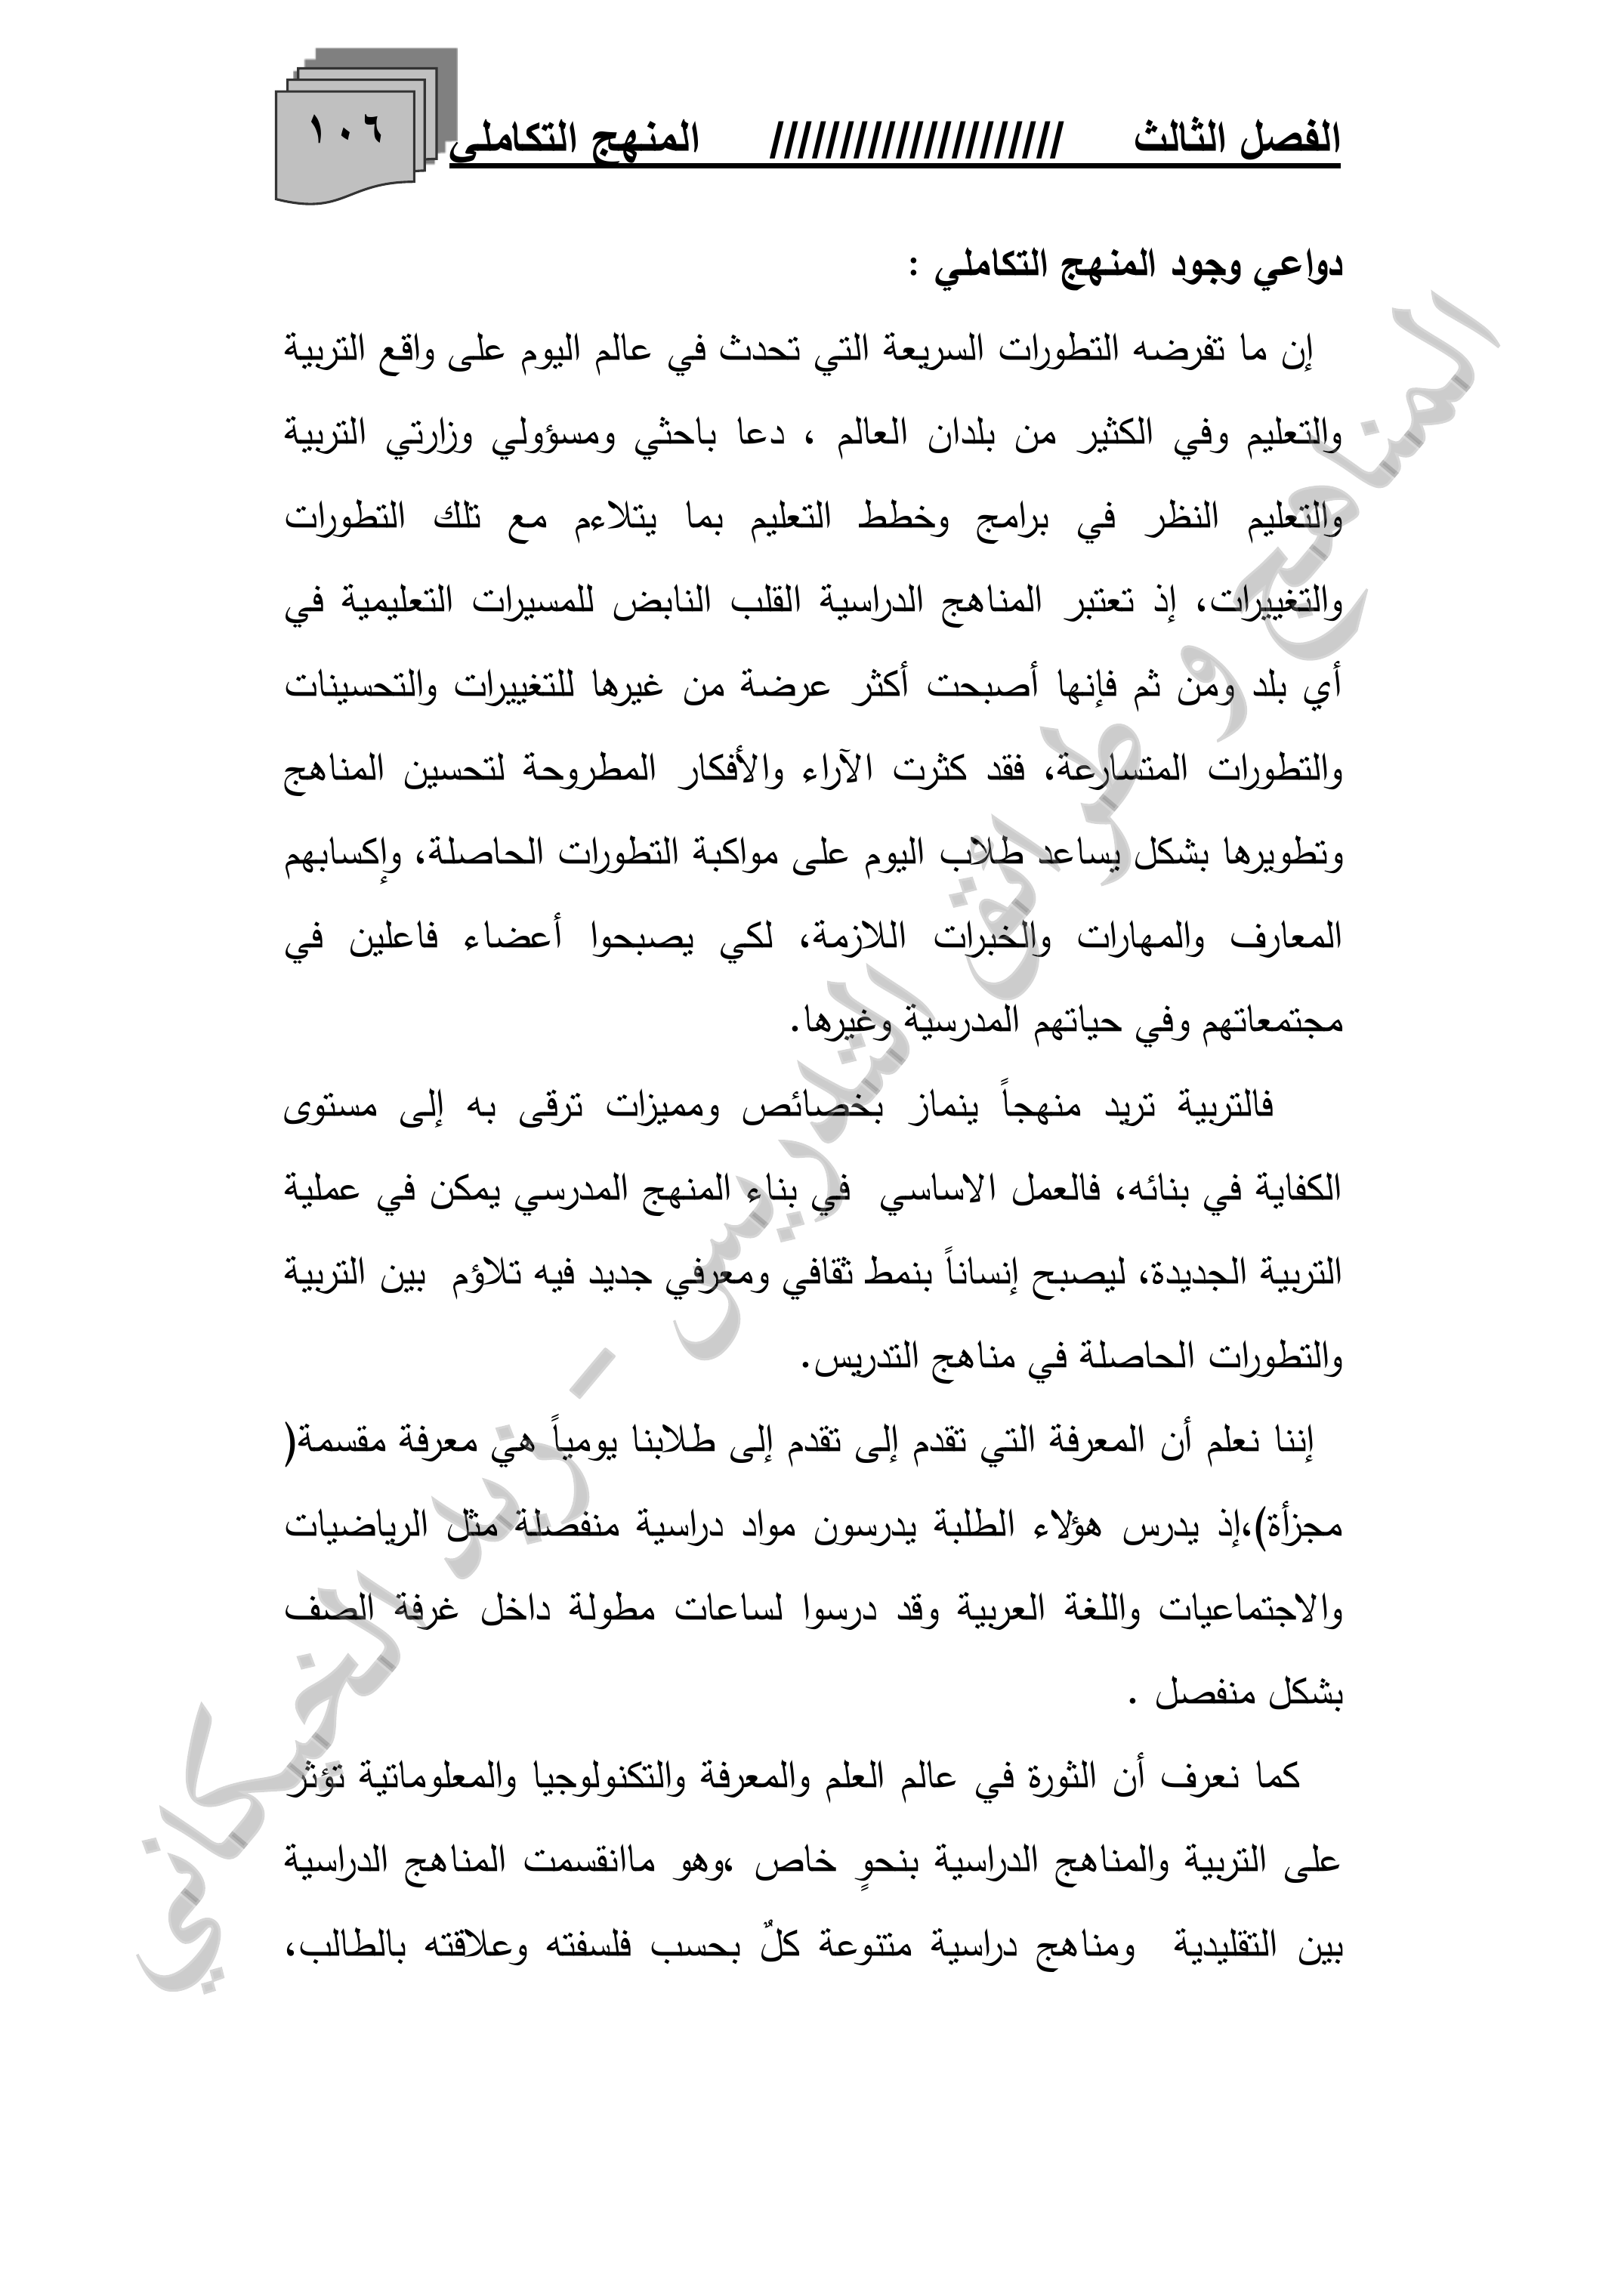 الفصل الثالث ///////////////////// المنهج التكاملي ١٠٦
دواعي وجود المنهج التكاملي :
إن ما تفرضه التطورات السريعة التي تحدث في عالم اليوم على واقع التربية
والتعليم وفي الكثير من بلدان العالم ، دعا باحثي ومسؤولي وزارتي التربية
والتعليم النظر في برامج وخطط التعليم بما يتلاءم مع تلك التطورات
والتغييرات، إذ تعتبر المناهج الدراسية القلب النابض للمسيرات التعليمية في
أي بلد ومن ثم فإنها أصبحت أكثر عرضة من غيرها للتغييرات والتحسينات
والتطورات المتسارعة، فقد كثرت الآراء والأفكار المطروحة لتحسين المناهج
وتطويرها بشكل يساعد طلاب اليوم على مواكبة التطورات الحاصلة، وإكسابهم
المعارف والمهارات والخبرات اللازمة، لكي يصبحوا أعضاء فاعلين في
مجتمعاتهم وفي حياتهم المدرسية وغيرها.
فالتربية تريد منهجاً ينماز بخصائص ومميزات ترقى به إلى مستوى
الكفاية في بنائه، فالعمل الاساسي في بناء المنهج المدرسي يمكن في عملية
التربية الجديدة، ليصبح إنساناً بنمط ثقافي ومعرفي جديد فيه تلاؤم بين التربية
والتطورات الحاصلة في مناهج التدريس.
إننا نعلم أن المعرفة التي تقدم إلى تقدم إلى طلابنا يومياً هي معرفة مقسمة(
مجزأة)،إذ يدرس هؤلاء الطلبة يدرسون مواد دراسية منفصلة مثل الرياضيات
والاجتماعيات واللغة العربية وقد درسوا لساعات مطولة داخل غرفة الصف
بشكل منفصل .
كما نعرف أن الثورة في عالم العلم والمعرفة والتكنولوجيا والمعلوماتية تؤثر
على التربية والمناهج الدراسية بنحوٍ خاص ،وهو ماانقسمت المناهج الدراسية
بين التقليدية ومناهج دراسية متنوعة كلٌ بحسب فلسفته وعلاقته بالطالب،
المناهج و طرائق التدريس - زيد الخيكاني